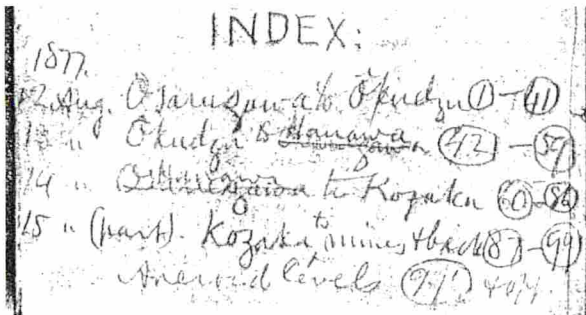 INDEX:
1877.
12 Aug. Ōsarusawa to Ōkudzu ① – ㊶
13 " Ōkudzu to Hanawa ㊷ –
14 " to Kozaka
15 " (part). Kozaka to mines & back 87 – 99
Aneroid levels